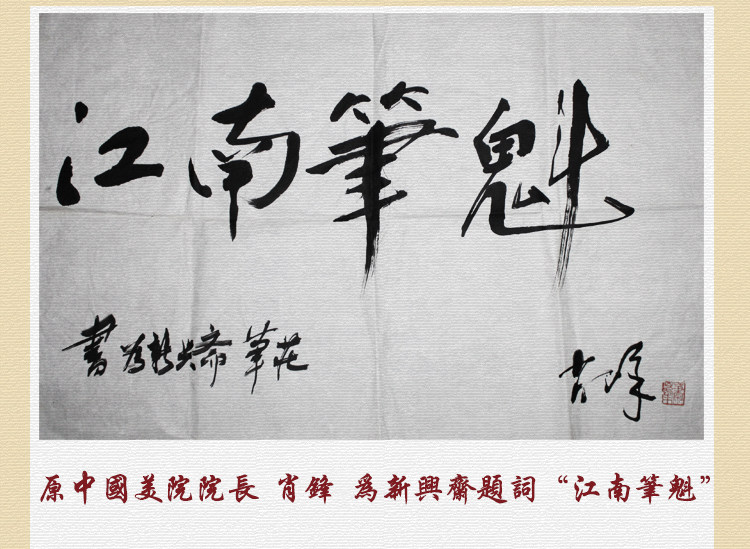 江南筆魁
書為新興齋筆莊
肖峰
原中國美院院長 肖鋒 為新興齋題詞“江南筆魁”